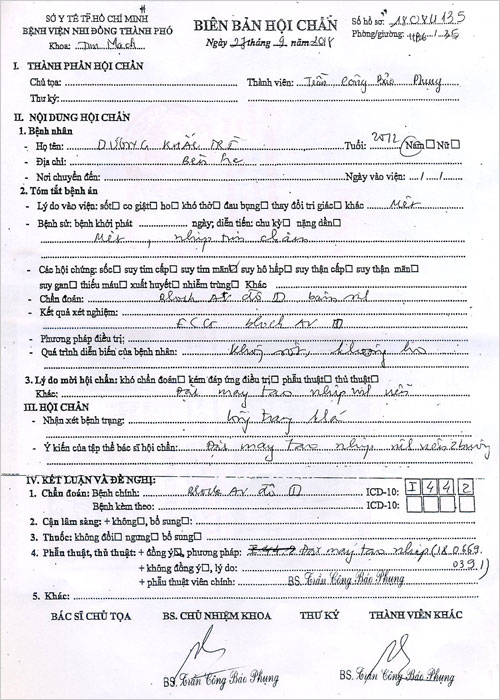 SỞ Y TẾ TP.HỒ CHÍ MINH
BỆNH VIỆN NHI ĐỒNG THÀNH PHỐ
Khoa: Tim Mạch
BIÊN BẢN HỘI CHẨN
Ngày tháng 9 năm 2018
Số hồ sơ: 18084135
Phòng/giường:
I. THÀNH PHẦN HỘI CHẨN
Chủ tọa: Thành viên: Trần Công Bảo Phụng
Thư ký:
II. NỘI DUNG HỘI CHẨN
1. Bệnh nhân
- Họ tên: DƯƠNG KHẮC Tuổi: 2012 Nam□ Nữ□
- Địa chỉ: Bến Tre
- Nơi chuyển đến: Ngày vào viện: .../..../....
2. Tóm tắt bệnh án
- Lý do vào viện: sốt□ co giật□ ho□ khó thở□ đau bụng□ thay đổi tri giác□ khác Mệt
- Bệnh sử: bệnh khởi phát ngày; diễn tiến: chu kỳ□ nặng dần□
Mệt, nhịp tim chậm
- Các hội chứng: sốc□ suy tim cấp□ suy tim mãn☑ suy hô hấp□ suy thận cấp□ suy thận mãn□
suy gan□ thiếu máu□ xuất huyết□ nhiễm trùng□ Khác
- Chẩn đoán: Block AV độ III bẩm
- Kết quả xét nghiệm:
ECG block AV III
- Phương pháp điều trị:
- Quá trình diễn biến của bệnh nhân: Không sốt, không ho
3. Lý do mời hội chẩn: khó chẩn đoán□ kém đáp ứng điều trị□ phẫu thuật□ thủ thuật□
Khác: Đặt máy tạo nhịp vĩnh viễn
III. HỘI CHẨN
- Nhận xét bệnh trạng:
- Ý kiến của tập thể bác sĩ hội chẩn: Đặt máy tạo nhịp vĩnh viễn 2 buồng
IV. KẾT LUẬN VÀ ĐỀ NGHỊ:
1. Chẩn đoán: Bệnh chính: Block AV độ III ICD-10: I442
Bệnh kèm theo: ICD-10:
2. Cận lâm sàng: + không□, bổ sung□:
3. Thuốc: không đổi□ ngưng□ bổ sung□:
4. Phẫu thuật, thủ thuật: + đồng ý☑, phương pháp: Đặt máy tạo nhịp (18.0669.
039.1)
+ không đồng ý□, lý do:
+ phẫu thuật viên chính: BS. Trần Công Bảo Phụng
5. Khác:
BÁC SĨ CHỦ TỌA BS. CHỦ NHIỆM KHOA THƯ KÝ THÀNH VIÊN KHÁC
BS. Trần Công Bảo Phụng BS. Trần Công Bảo Phụng